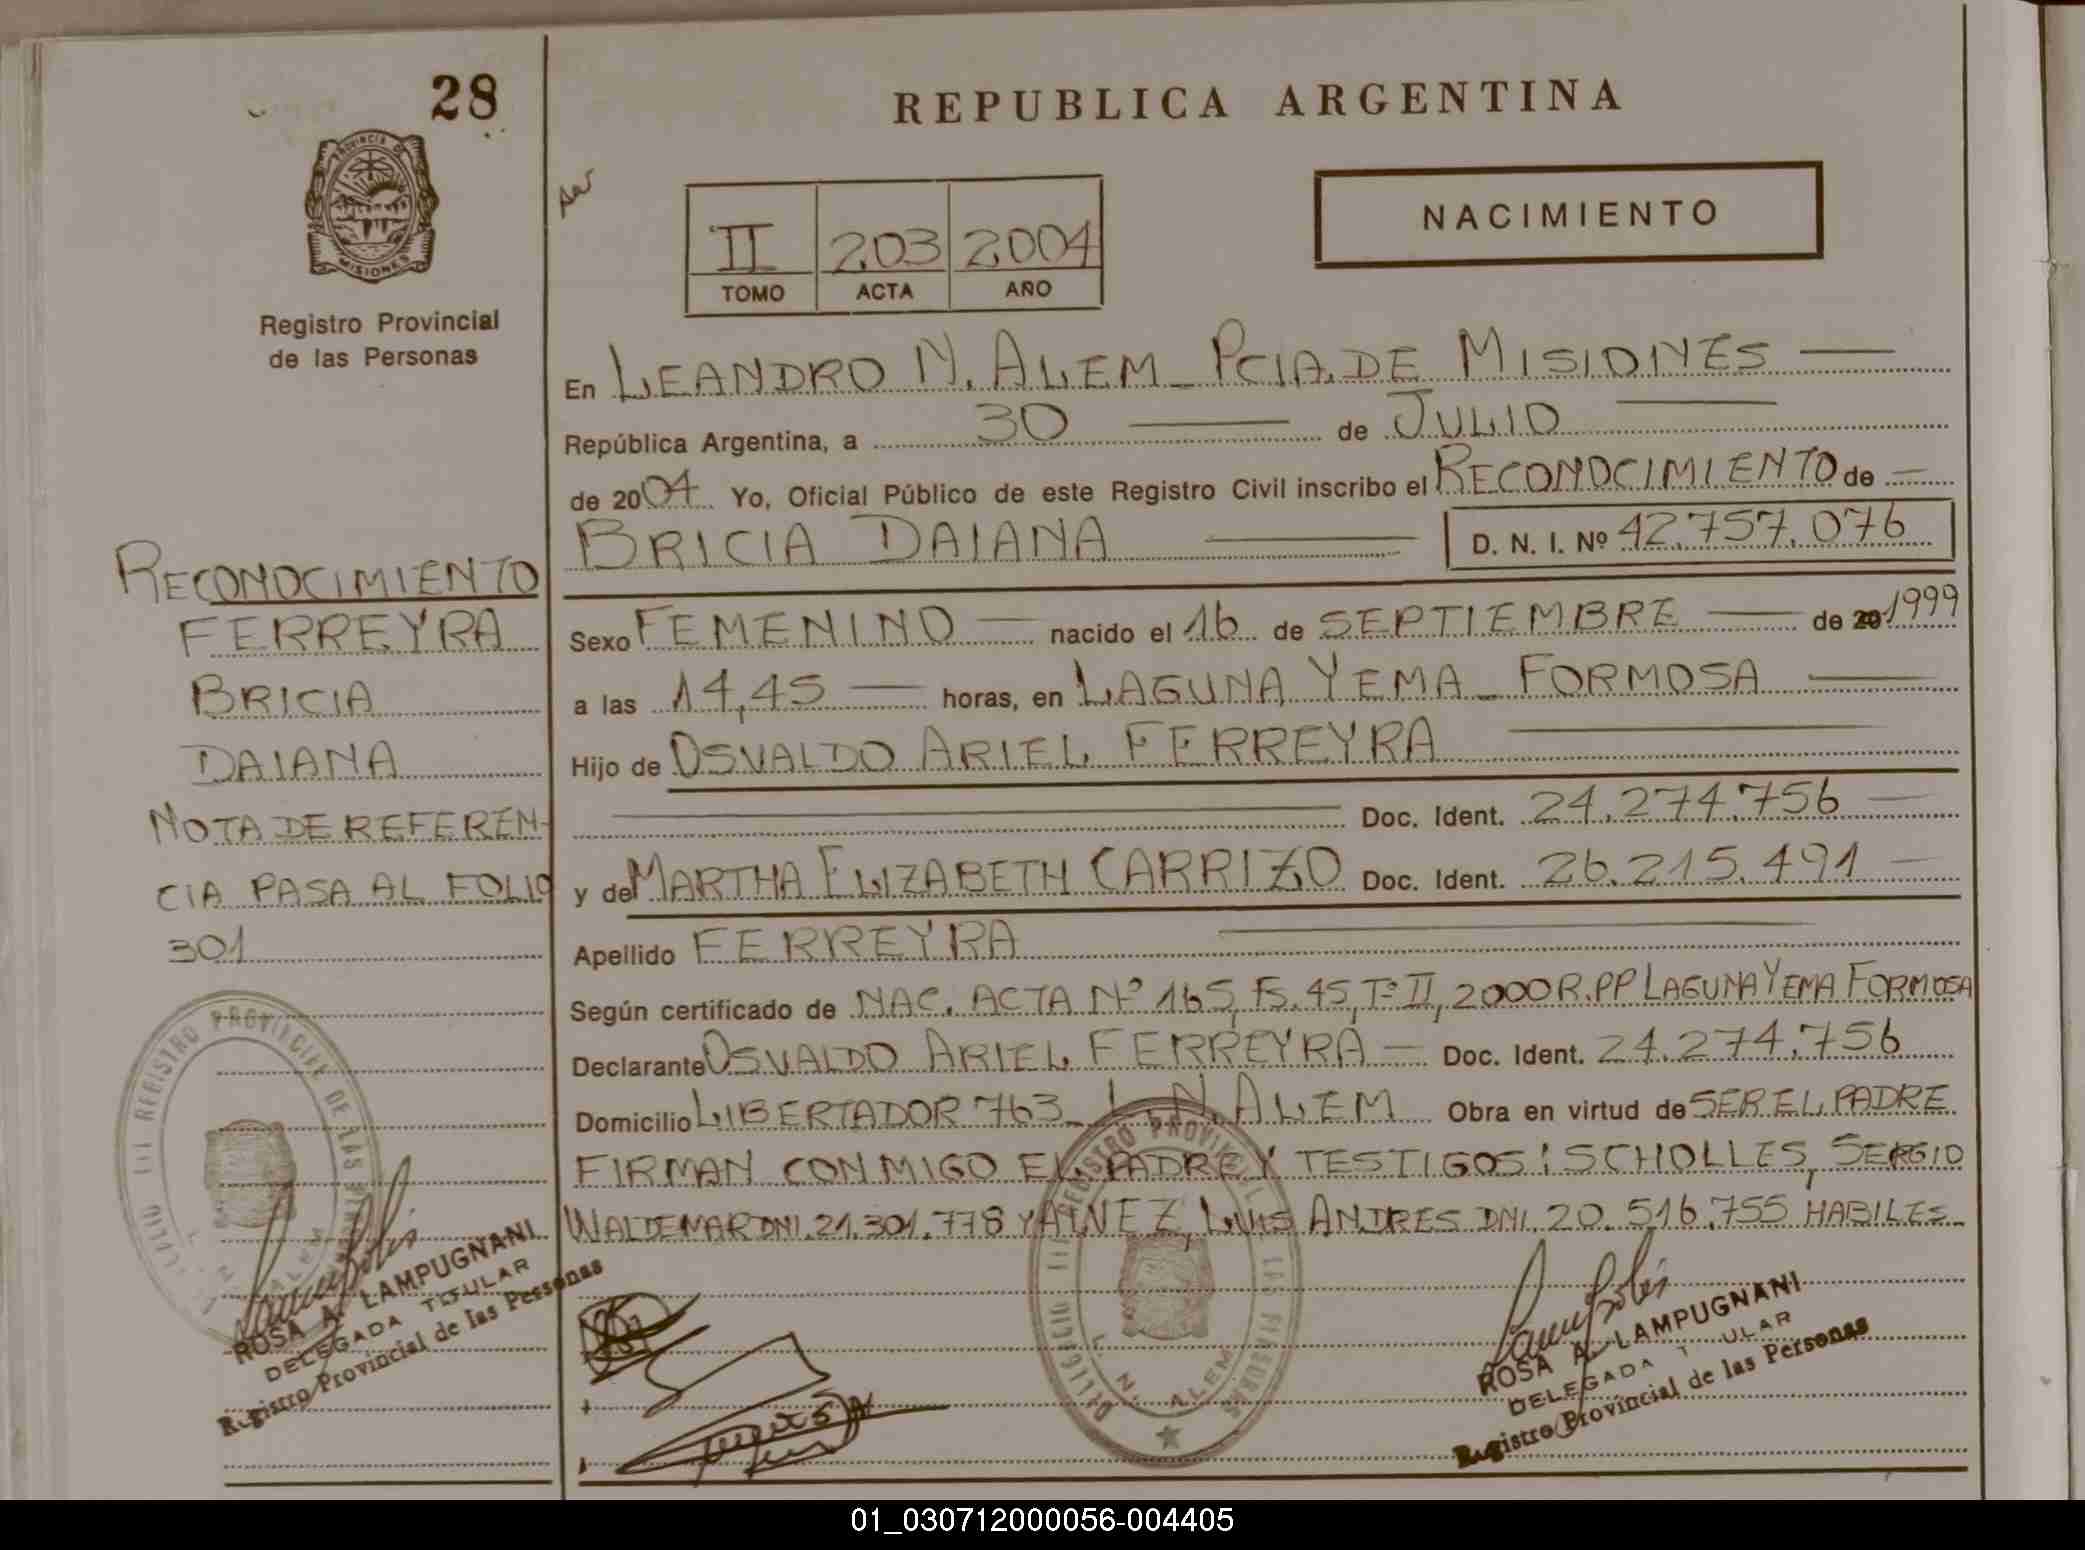 28
PROVINCIA DE
MISIONES
Registro Provincial
de las Personas
RECONOCIMIENTO
FERREYRA
BRICIA
DAIANA
NOTA DE REFEREN-
CIA PASA AL FOLIO
301
REGISTRO PROVINCIAL DE LAS PERSONAS
ROSA A. LAMPUGNANI
DELEGADA TITULAR
Registro Provincial de las Personas
REPUBLICA ARGENTINA
II 203 2004
TOMO ACTA AÑO
NACIMIENTO
En LEANDRO N. ALEM - PCIA. DE MISIONES
República Argentina, a 30 de JULIO
de 2004 Yo, Oficial Público de este Registro Civil inscribo el RECONOCIMIENTO de
BRICIA DAIANA D. N. I. Nº 42.757.076
Sexo FEMENINO nacido el 16 de SEPTIEMBRE de 20 1999
a las 14,45 horas, en LAGUNA YEMA - FORMOSA
Hijo de OSVALDO ARIEL FERREYRA
Doc. Ident. 24.274.756
y de MARTHA ELIZABETH CARRIZO Doc. Ident. 26.215.491
Apellido FERREYRA
Según certificado de NAC. ACTA Nº 165, Fs. 45, Tº II, 2000 R.PP LAGUNA YEMA FORMOSA
Declarante OSVALDO ARIEL FERREYRA Doc. Ident. 24.274.756
Domicilio LIBERTADOR 763 - L. N. ALEM Obra en virtud de SER EL PADRE
FIRMAN CONMIGO EL PADRE Y TESTIGOS: SCHOLLES, SERGIO
WALDEMAR DNI. 21.301.778 Y AINEZ, LUIS ANDRES DNI. 20.516.755 HABILES-
REGISTRO PROVINCIAL DE LAS PERSONAS
L. N. ALEM
ROSA A. LAMPUGNANI
DELEGADA TITULAR
Registro Provincial de las Personas
01_030712000056-004405